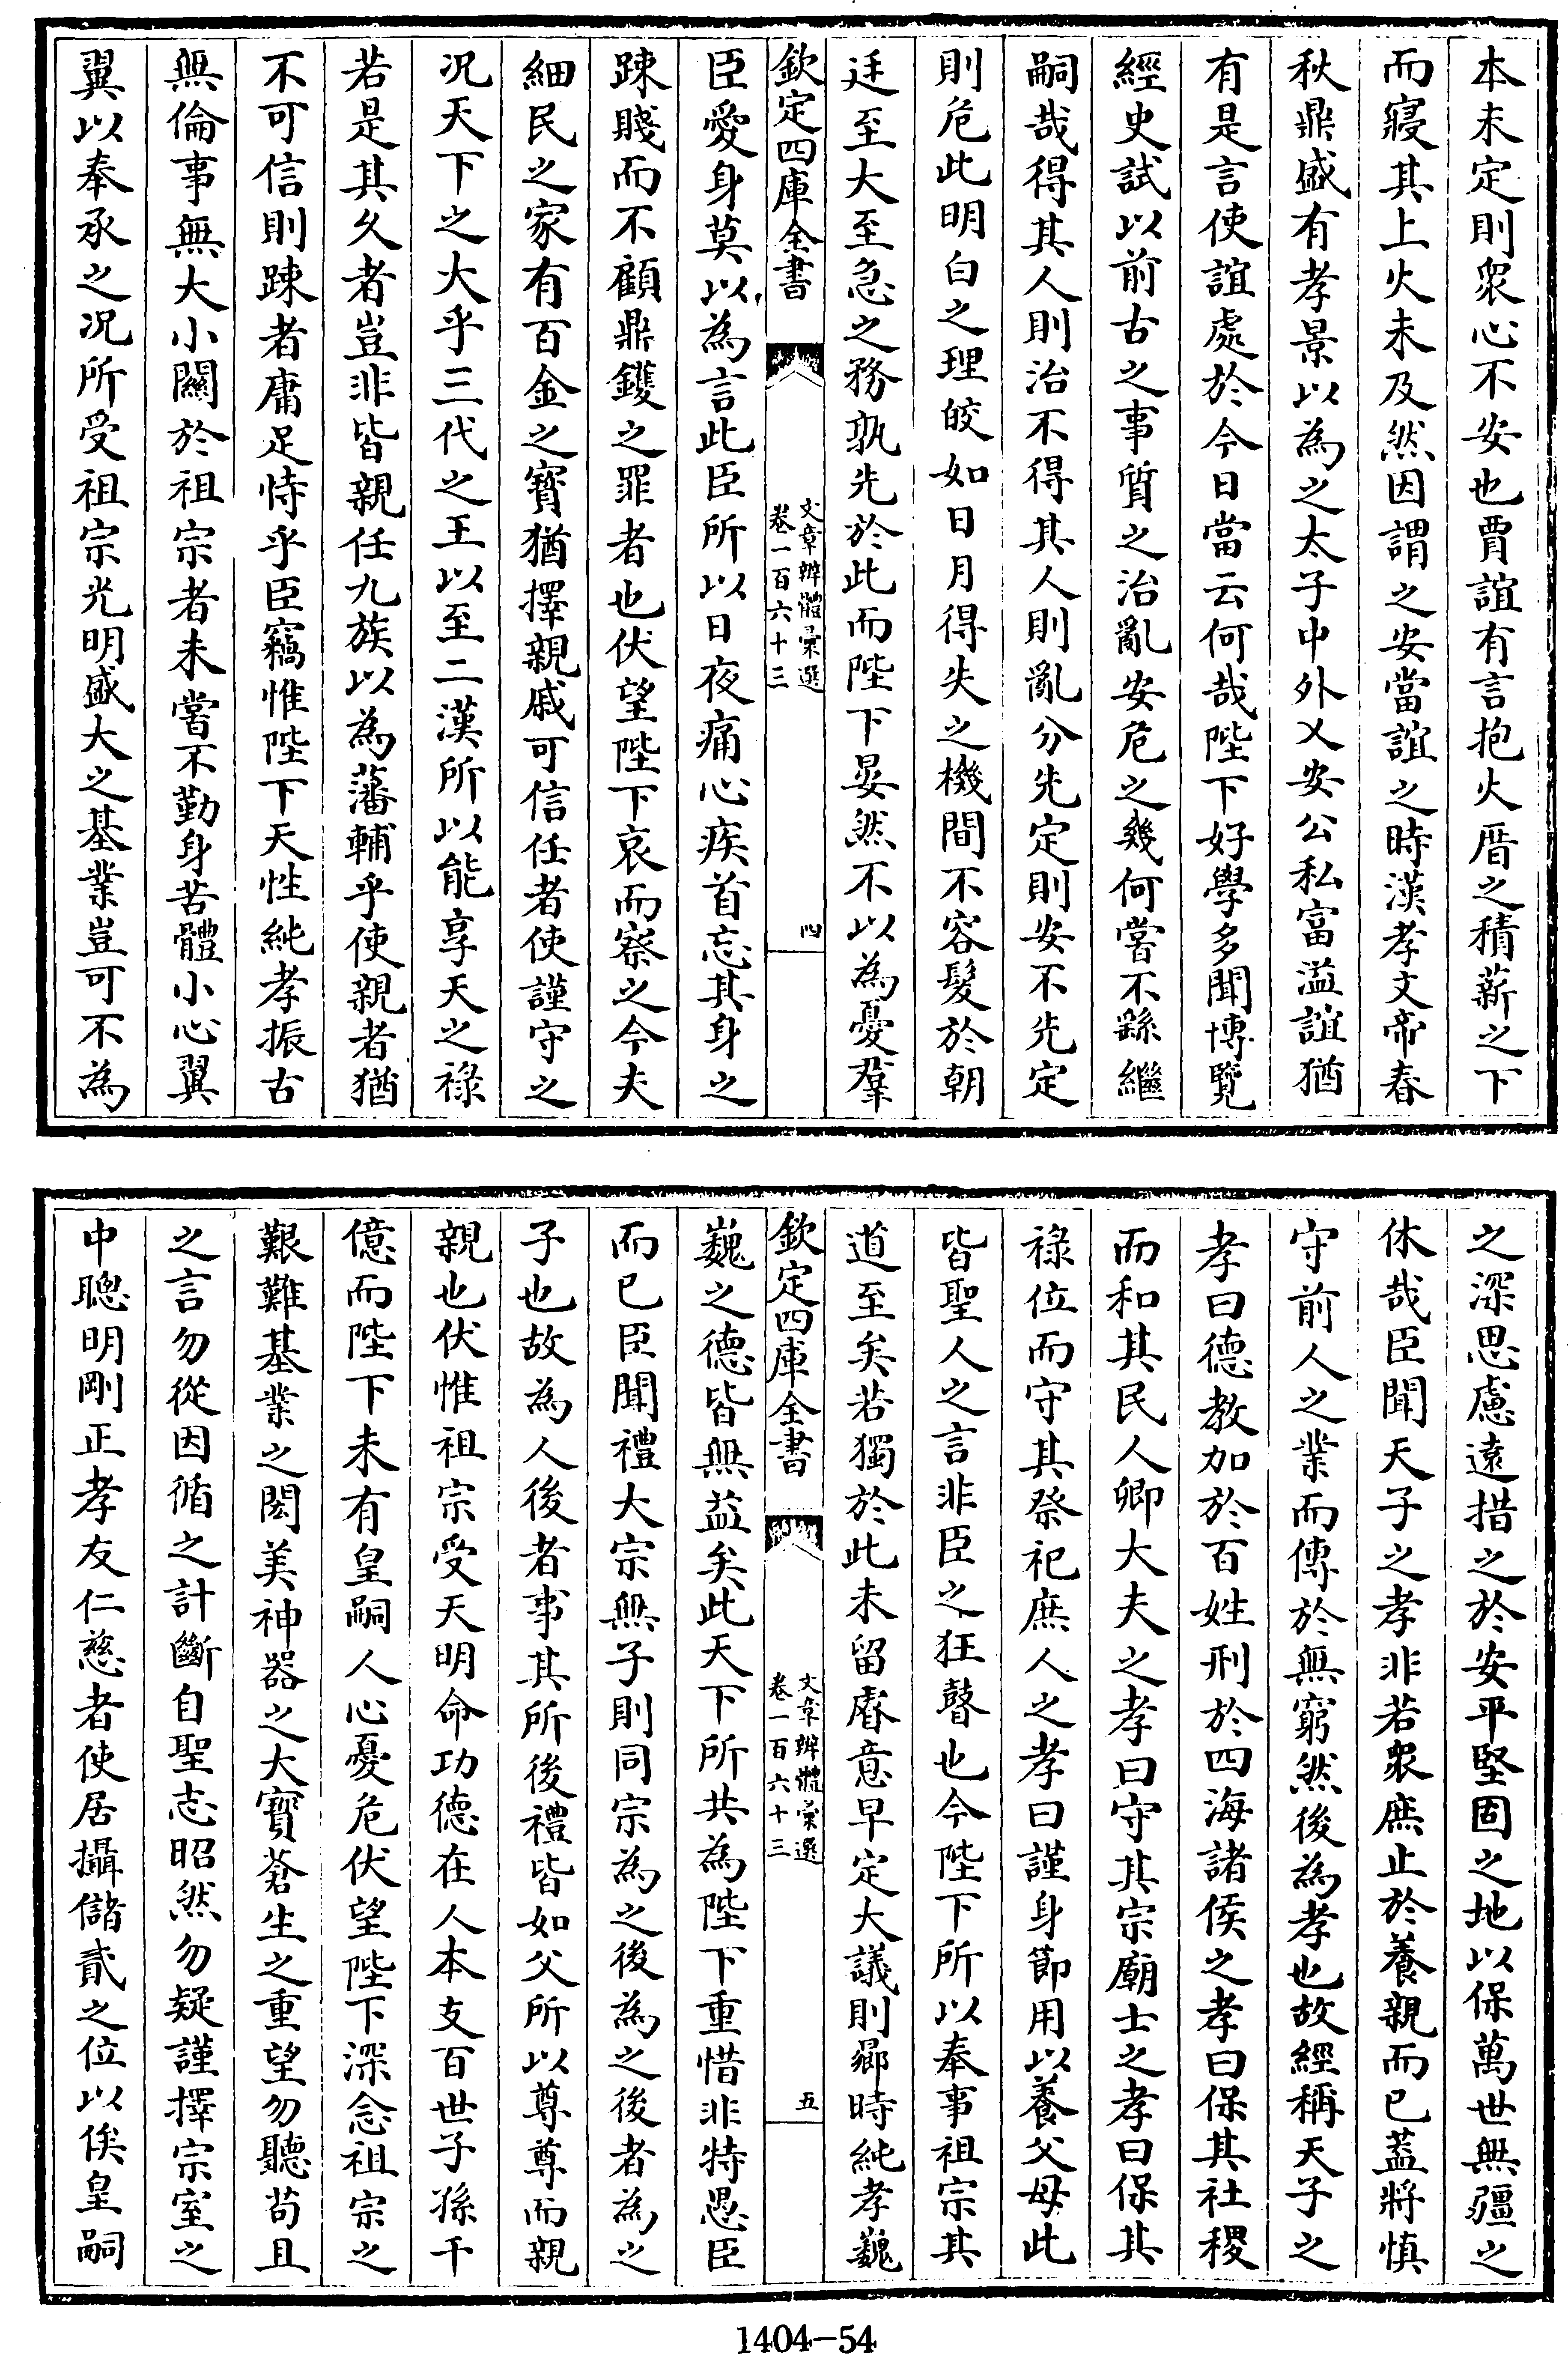 本未定則衆心不安也賈誼有言抱火厝之積薪之下
而寢其上火未及然因謂之安當誼之時漢孝文帝春
秋鼎盛有孝景以為之太子中外乂安公私富溢誼猶
有是言使誼處於今日當云何哉陛下好學多聞博覽
經史試以前古之事質之治亂安危之幾何嘗不繇繼
嗣哉得其人則治不得其人則亂分先定則安不先定
則危此明白之理皎如日月得失之機間不容髮於朝
廷至大至急之務孰先於此而陛下晏然不以為憂羣
欽定四庫全書
文章辨體彙選
卷一百六十三
四
臣愛身莫以為言此臣所以日夜痛心疾首忘其身之
踈賤而不顧鼎鑊之罪者也伏望陛下哀而察之今夫
細民之家有百金之寳猶擇親戚可信任者使謹守之
况天下之大乎三代之王以至二漢所以能享天之禄
若是其久者豈非皆親任九族以為藩輔乎使親者猶
不可信則踈者庸足恃乎臣竊惟陛下天性純孝振古
無倫事無大小關於祖宗者未嘗不勤身苦體小心翼
翼以奉承之况所受祖宗光明盛大之基業豈可不為
之深思慮遠措之於安平堅固之地以保萬世無疆之
休哉臣聞天子之孝非若衆庶止於養親而已蓋將慎
守前人之業而傳於無窮然後為孝也故經稱天子之
孝曰德教加於百姓刑於四海諸侯之孝曰保其社稷
而和其民人卿大夫之孝曰守其宗廟士之孝曰保其
禄位而守其祭祀庶人之孝曰謹身節用以養父母此
皆聖人之言非臣之狂瞽也今陛下所以奉事祖宗其
道至矣若獨於此未留睿意早定大議則鄉時純孝巍
欽定四庫全書
文章辨體彙選
卷一百六十三
五
巍之德皆無益矣此天下所共為陛下重惜非特愚臣
而已臣聞禮大宗無子則同宗為之後為之後者為之
子也故為人後者事其所後禮皆如父所以尊尊而親
親也伏惟祖宗受天明命功德在人本支百世子孫千
億而陛下未有皇嗣人心憂危伏望陛下深念祖宗之
艱難基業之閎美神器之大寳蒼生之重望勿聽苟且
之言勿從因循之計斷自聖志昭然勿疑謹擇宗室之
中聰明剛正孝友仁慈者使居攝儲貳之位以俟皇嗣
1404-54